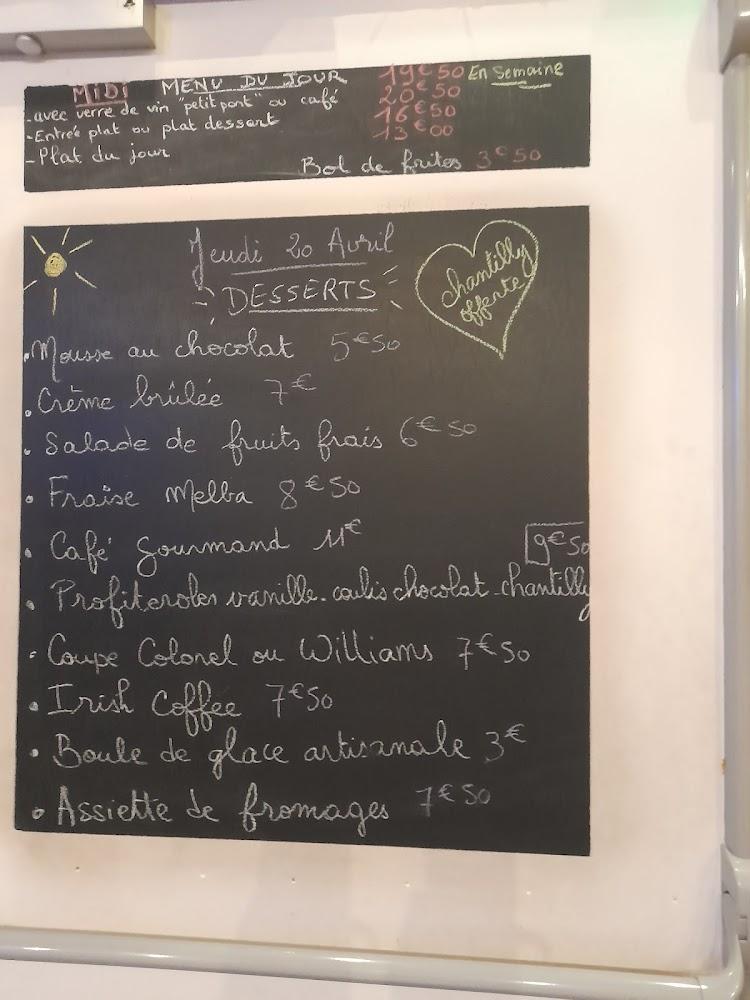 MIDI MENU DU JOUR 19€50 En semaine
- avec verre de vin "petit pont" ou café 20€50
- Entrée plat ou plat dessert 16€50
- Plat du jour 13€00
Bol de frites 3€50
Jeudi 20 Avril
DESSERTS
chantilly
offerte
. Mousse au chocolat 5€50
. Crème brûlée 7€
. Salade de fruits frais 6€50
. Fraise Melba 8€50
. Café Gourmand 11€
9€50
. Profiteroles vanille-coulis chocolat-chantilly
. Coupe Colonel ou Williams 7€50
. Irish Coffee 7€50
. Boule de glace artisanale 3€
. Assiette de fromages 7€50